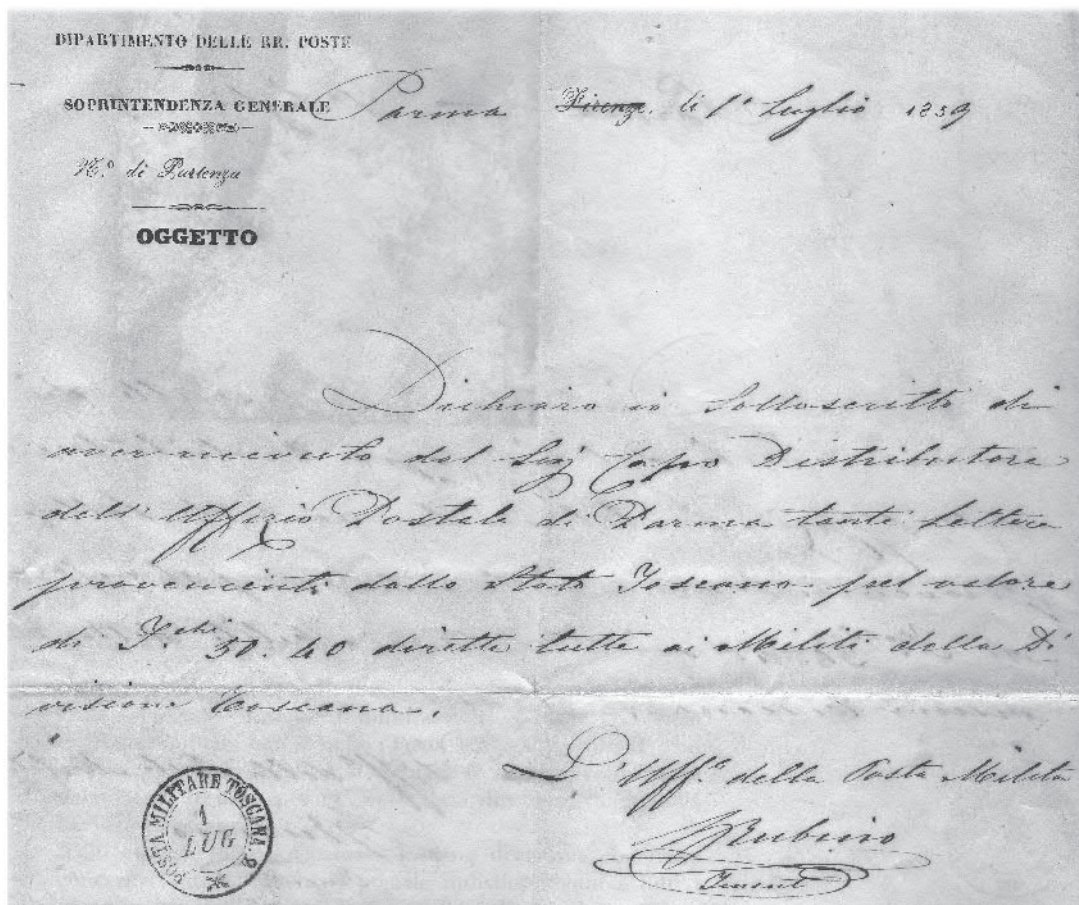 DIPARTIMENTO DELLE RR. POSTE
SOPRINTENDENZA GENERALE
N.º di Partenza
OGGETTO
Parma Firenze, li 1º Luglio 1859
Dichiaro io Sottoscritto di
aver ricevuto dal Sig Capo Distributore
dell'Uffizio Postale di Parma tante Lettere
provenienti dallo Stato Toscano pel valore
di F.chi 50. 40 dirette tutte ai Militi della Di
visione Toscana.
L'Uff.º della Posta Milita
Rubino
POSTA MILITARE TOSCANA. 2
1
LUG